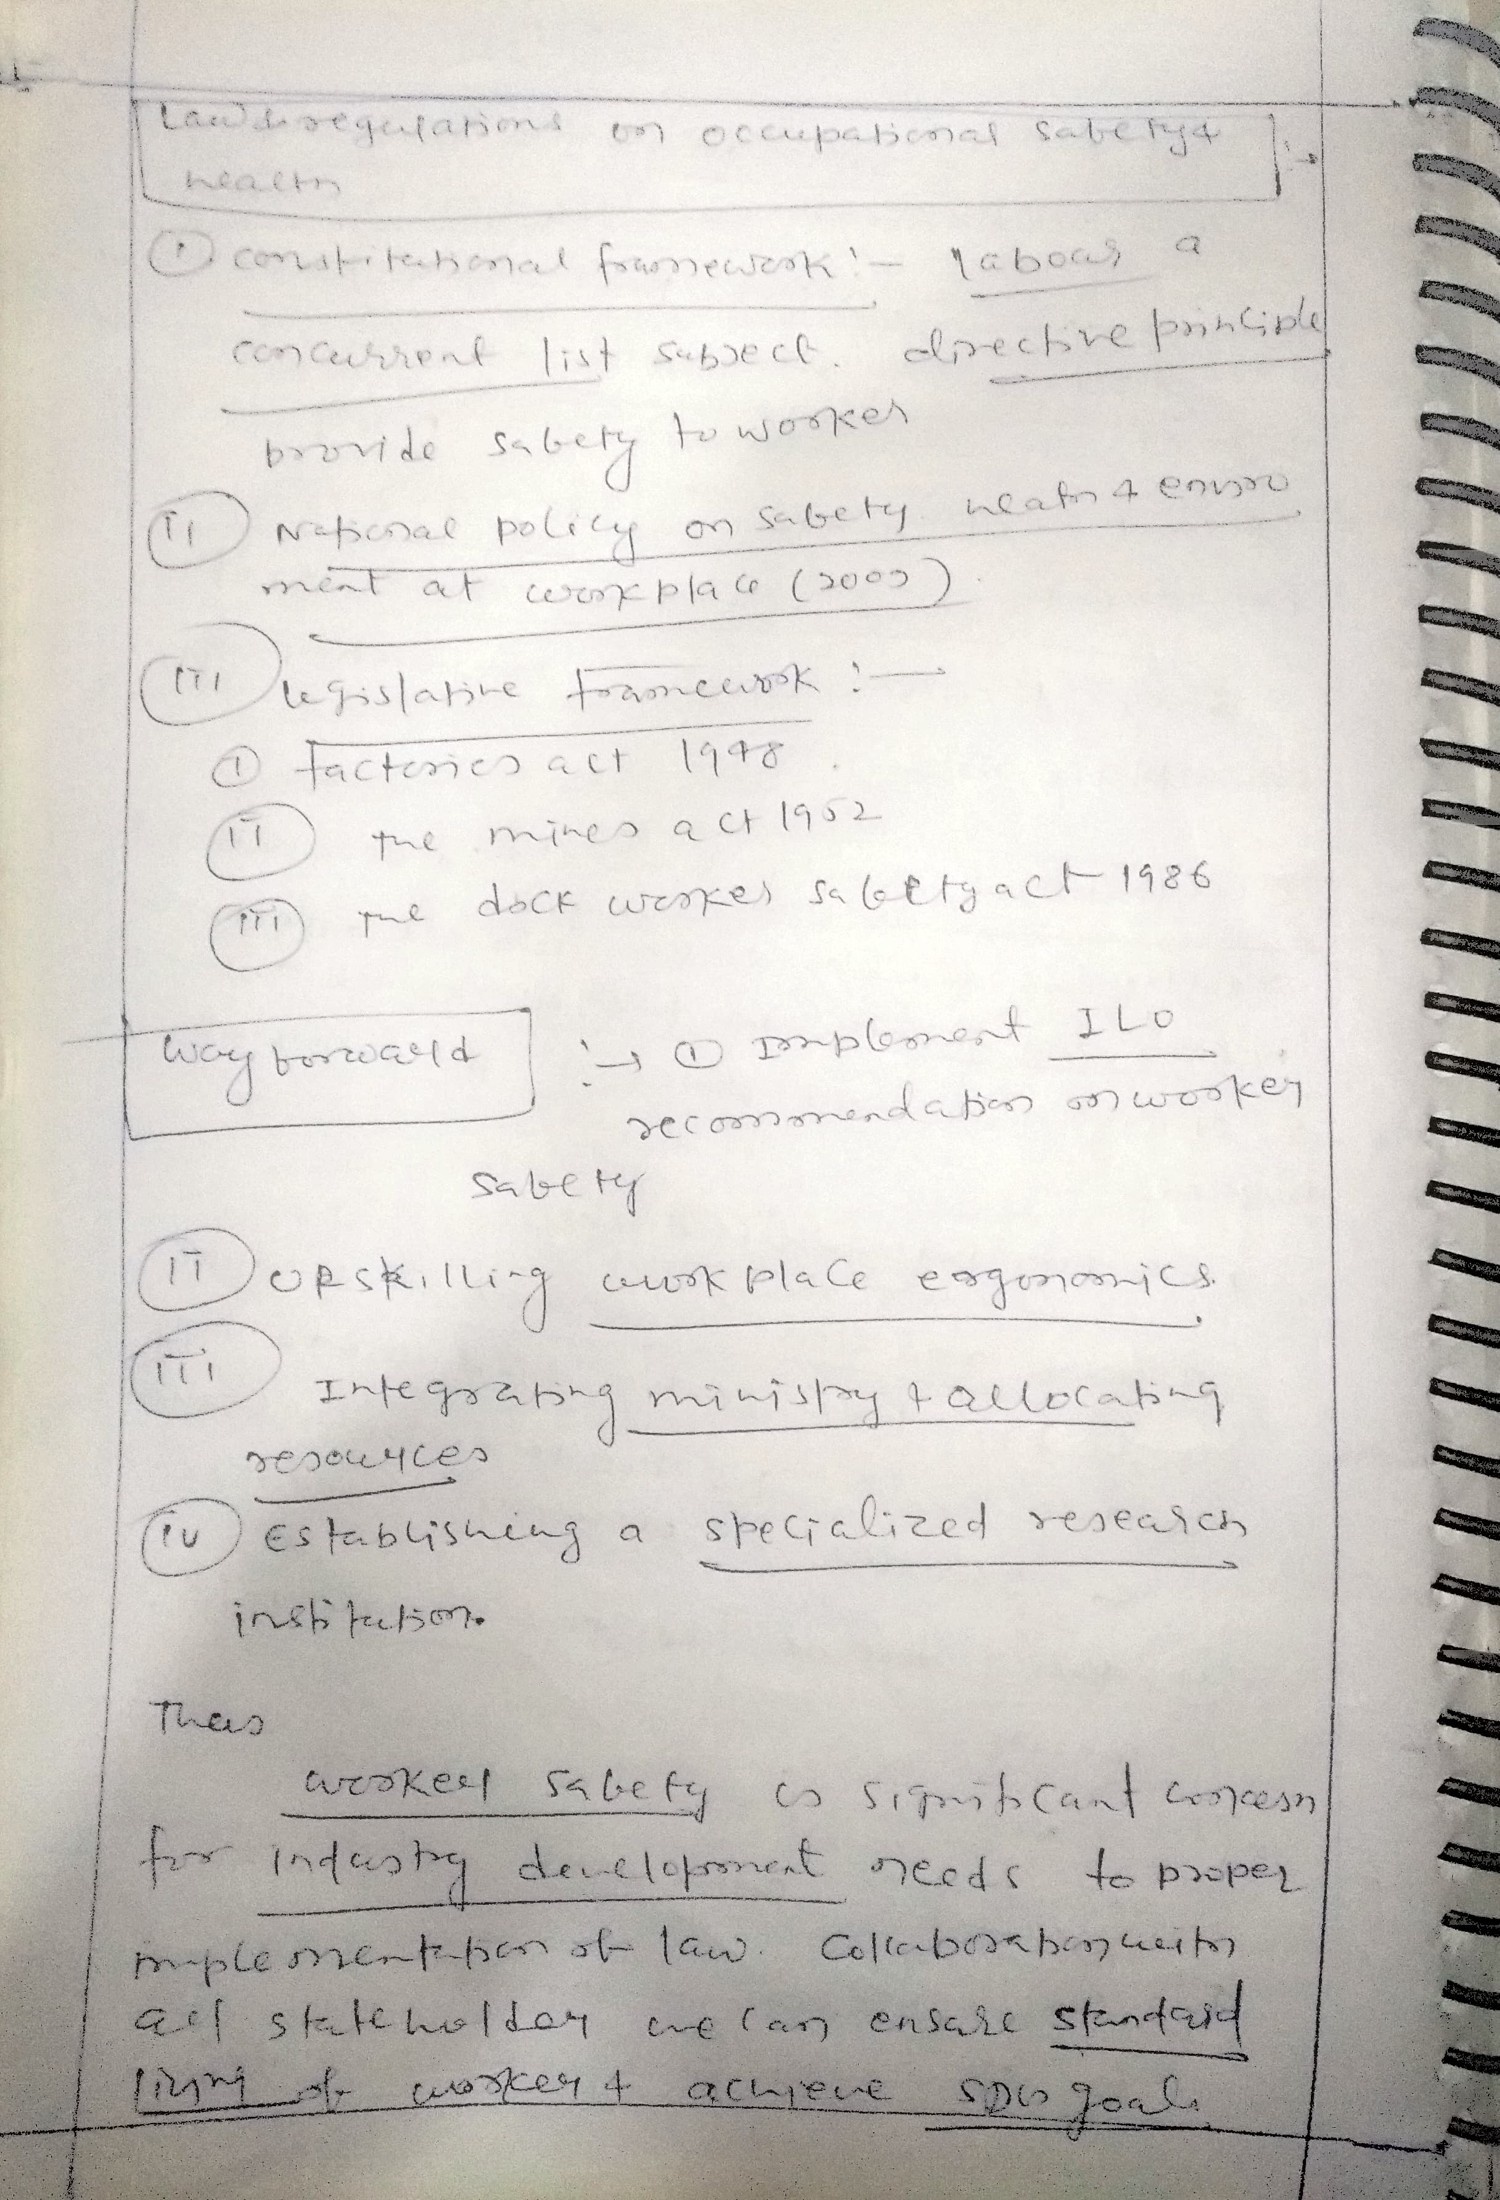 Law & regulations on occupational safety &
health
(i) constitutional framework :- labour a
concurrent list subject. directive principle
provide safety to worker
(ii) National policy on safety health & enviro
ment at workplace (2009)
(iii) legislative framework :-
(i) factories act 1948.
(ii) The mines act 1952
(iii) The dock worker safety act 1986
Way forward :→ (i) Implement ILO
recommendation on worker
safety
(ii) UPskilling workplace ergonomics.
(iii) Integrating ministry & allocating
resources
(iv) Establishing a specialized research
institution.
Thus
worker safety is significant concern
for industry development needs to proper
implementation of law. Collaboration with
all stakeholder we can ensure standard
living of worker & achieve SDG goals